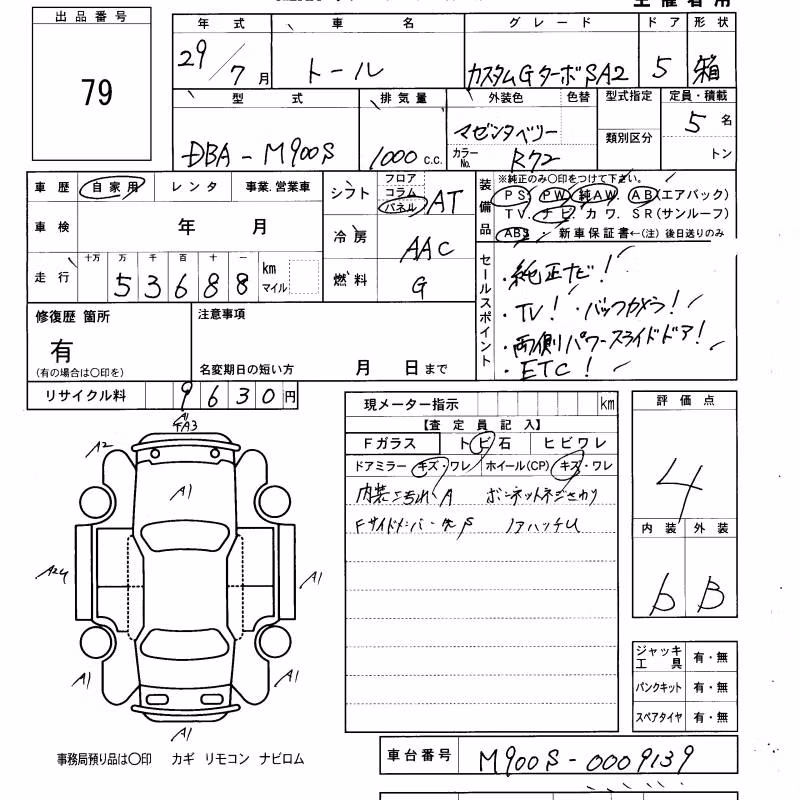 出品番号
79
年式 車名 グレード ドア 形状
29/7月 トール カスタムGターボSA2 5 箱
型式 排気量 外装色 色替 型式指定 定員・積載
DBA-M900S 1000c.c. マゼンタベリー 類別区分 5名
カラーNo. R72 トン
車歴 自家用 レンタ 事業.営業車
シフト フロア コラム パネル AT
装備品 ※純正のみ○印をつけて下さい。
PS. PW. 純AW. AB(エアバック)
TV. ナビ. カワ. SR(サンルーフ)
ABS・新車保証書←(注)後日送りのみ
車検 年 月
冷房 AAC
走行 十万 万 千 百 十 一
53688 km マイル
燃料 G
セールスポイント
・純正ナビ!
・TV! ・バックカメラ!
・両側パワースライドドア!
・ETC!
修復歴 箇所
有
(有の場合は○印を)
注意事項
名変期日の短い方 月 日まで
リサイクル料 9630円
現メーター指示 km
【査定員記入】
Fガラス トビ石 ヒビワレ
ドアミラー キズ・ワレ ホイール(CP) キズ・ワレ
内装ヨゴれ A ボンネットネジさわり
評価点
4
内装 外装
b B
A1
FA3
A2
A1
A24
A1
A1
A1
A1
ジャッキ工具 有・無
パンクキット 有・無
スペアタイヤ 有・無
車台番号 M900S-0009139
事務局預り品は○印 カギ リモコン ナビロム